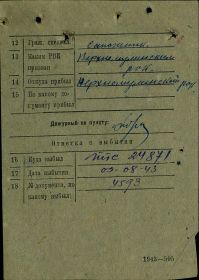 12 Граж. специал. сапожник
13 Каким РВК
призван
Верхнемуллинским
РВК
14 Откуда прибыл Верхнемуллинский РВК
15 По какому до-
кументу прибыл
Дежурный по пункту:
Отметка о выбытии
16 Куда выбыл п/п 24871
17 Дата выбытия 09-08-43
18 № документа, по
какому выбыл: 4593
1943—505